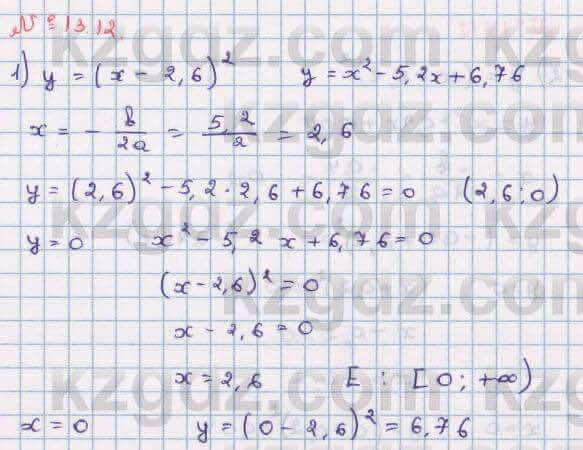 № 13.12.
1) y = (x - 2,6)² y = x² - 5,2x + 6,76
x = - b/2a = 5,2/2 = 2,6
y = (2,6)² - 5,2 · 2,6 + 6,76 = 0 (2,6 ; 0)
y = 0 x² - 5,2x + 6,76 = 0
(x - 2,6)² = 0
x - 2,6 = 0
x = 2,6 E : [0; +∞)
x = 0 y = (0 - 2,6)² = 6,76
kzgdz.com